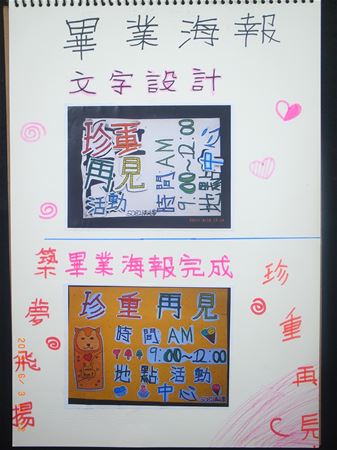 畢業海報
文字設計
珍重
再見
活動
時間:AM
9:00~12:00
地點
中心
築夢飛揚
畢業海報完成
珍重再見
珍重再見
時間AM
9:00~12:00
地點活動
中心